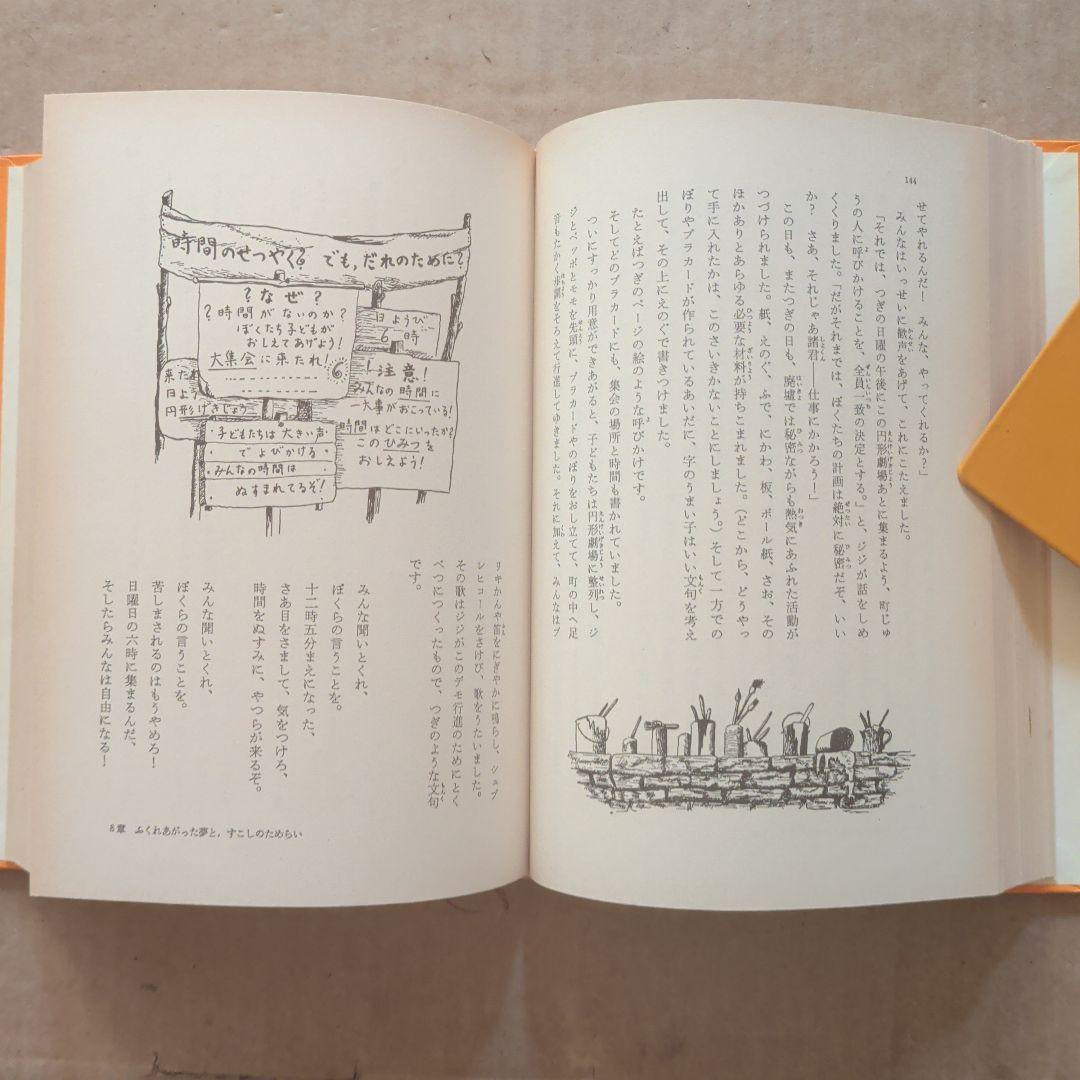 144
せてやれるんだ! みんな、やってくれるか?」
みんなはいっせいに歓声をあげて、これにこたえました。
「それでは、つぎの日曜の午後にこの円形劇場あとに集まるよう、町じゅ
うの人に呼びかけることを、全員一致の決定とする。」と、ジジが話をしめ
くくりました。「だがそれまでは、ぼくたちの計画は絶対に秘密だぞ、いい
か? さあ、それじゃあ諸君——仕事にかかろう!」
この日も、またつぎの日も、廃墟では秘密ながらも熱気にあふれた活動が
つづけられました。紙、えのぐ、ふで、にかわ、板、ボール紙、さお、その
ほかありとあらゆる必要な材料が持ちこまれました。(どこから、どうやっ
て手に入れたかは、このさいきかないことにしましょう。)そして一方での
ぼりやプラカードが作られているあいだに、字のうまい子はいい文句を考え
出して、その上にえのぐで書きつけました。
たとえばつぎのページの絵のような呼びかけです。
そしてどのプラカードにも、集会の場所と時間も書かれていました。
ついにすっかり用意ができあがると、子どもたちは円形劇場に整列し、ジ
ジとベッポとモモを先頭に、プラカードやのぼりをおし立てて、町の中へ足
音もたかく歩調をそろえて行進してゆきました。それに加えて、みんなはブ
時間のせつやく? でも,だれのために?
? な ぜ ?
? 時間がないのか?
ぼくたち子どもが
おしえてあげよう!
大集会に来たれ!
6
日ようび
6時
来たれ
日よう
円形げきじょう
!注意!
みんなの時間に
一大事がおこっている!
時間はどこにいったか?
このひみつを
おしえよう!
子どもたちは大きい声
でよびかける
みんなの時間は
ぬすまれてるぞ!
リキかんや笛をにぎやかに鳴らし、シュプ
レヒコールをさけび、歌をうたいました。
その歌はジジがこのデモ行進のためにとく
べつにつくったもので、つぎのような文句
です。
みんな聞いとくれ、
ぼくらの言うことを。
十二時五分まえになった、
さあ目をさまして、気をつけろ、
時間をぬすみに、やつらが来るぞ。
みんな聞いとくれ、
ぼくらの言うことを。
苦しまされるのはもうやめろ!
日曜日の六時に集まるんだ、
そしたらみんなは自由になる!
8章 ふくれあがった夢と,すこしのためらい